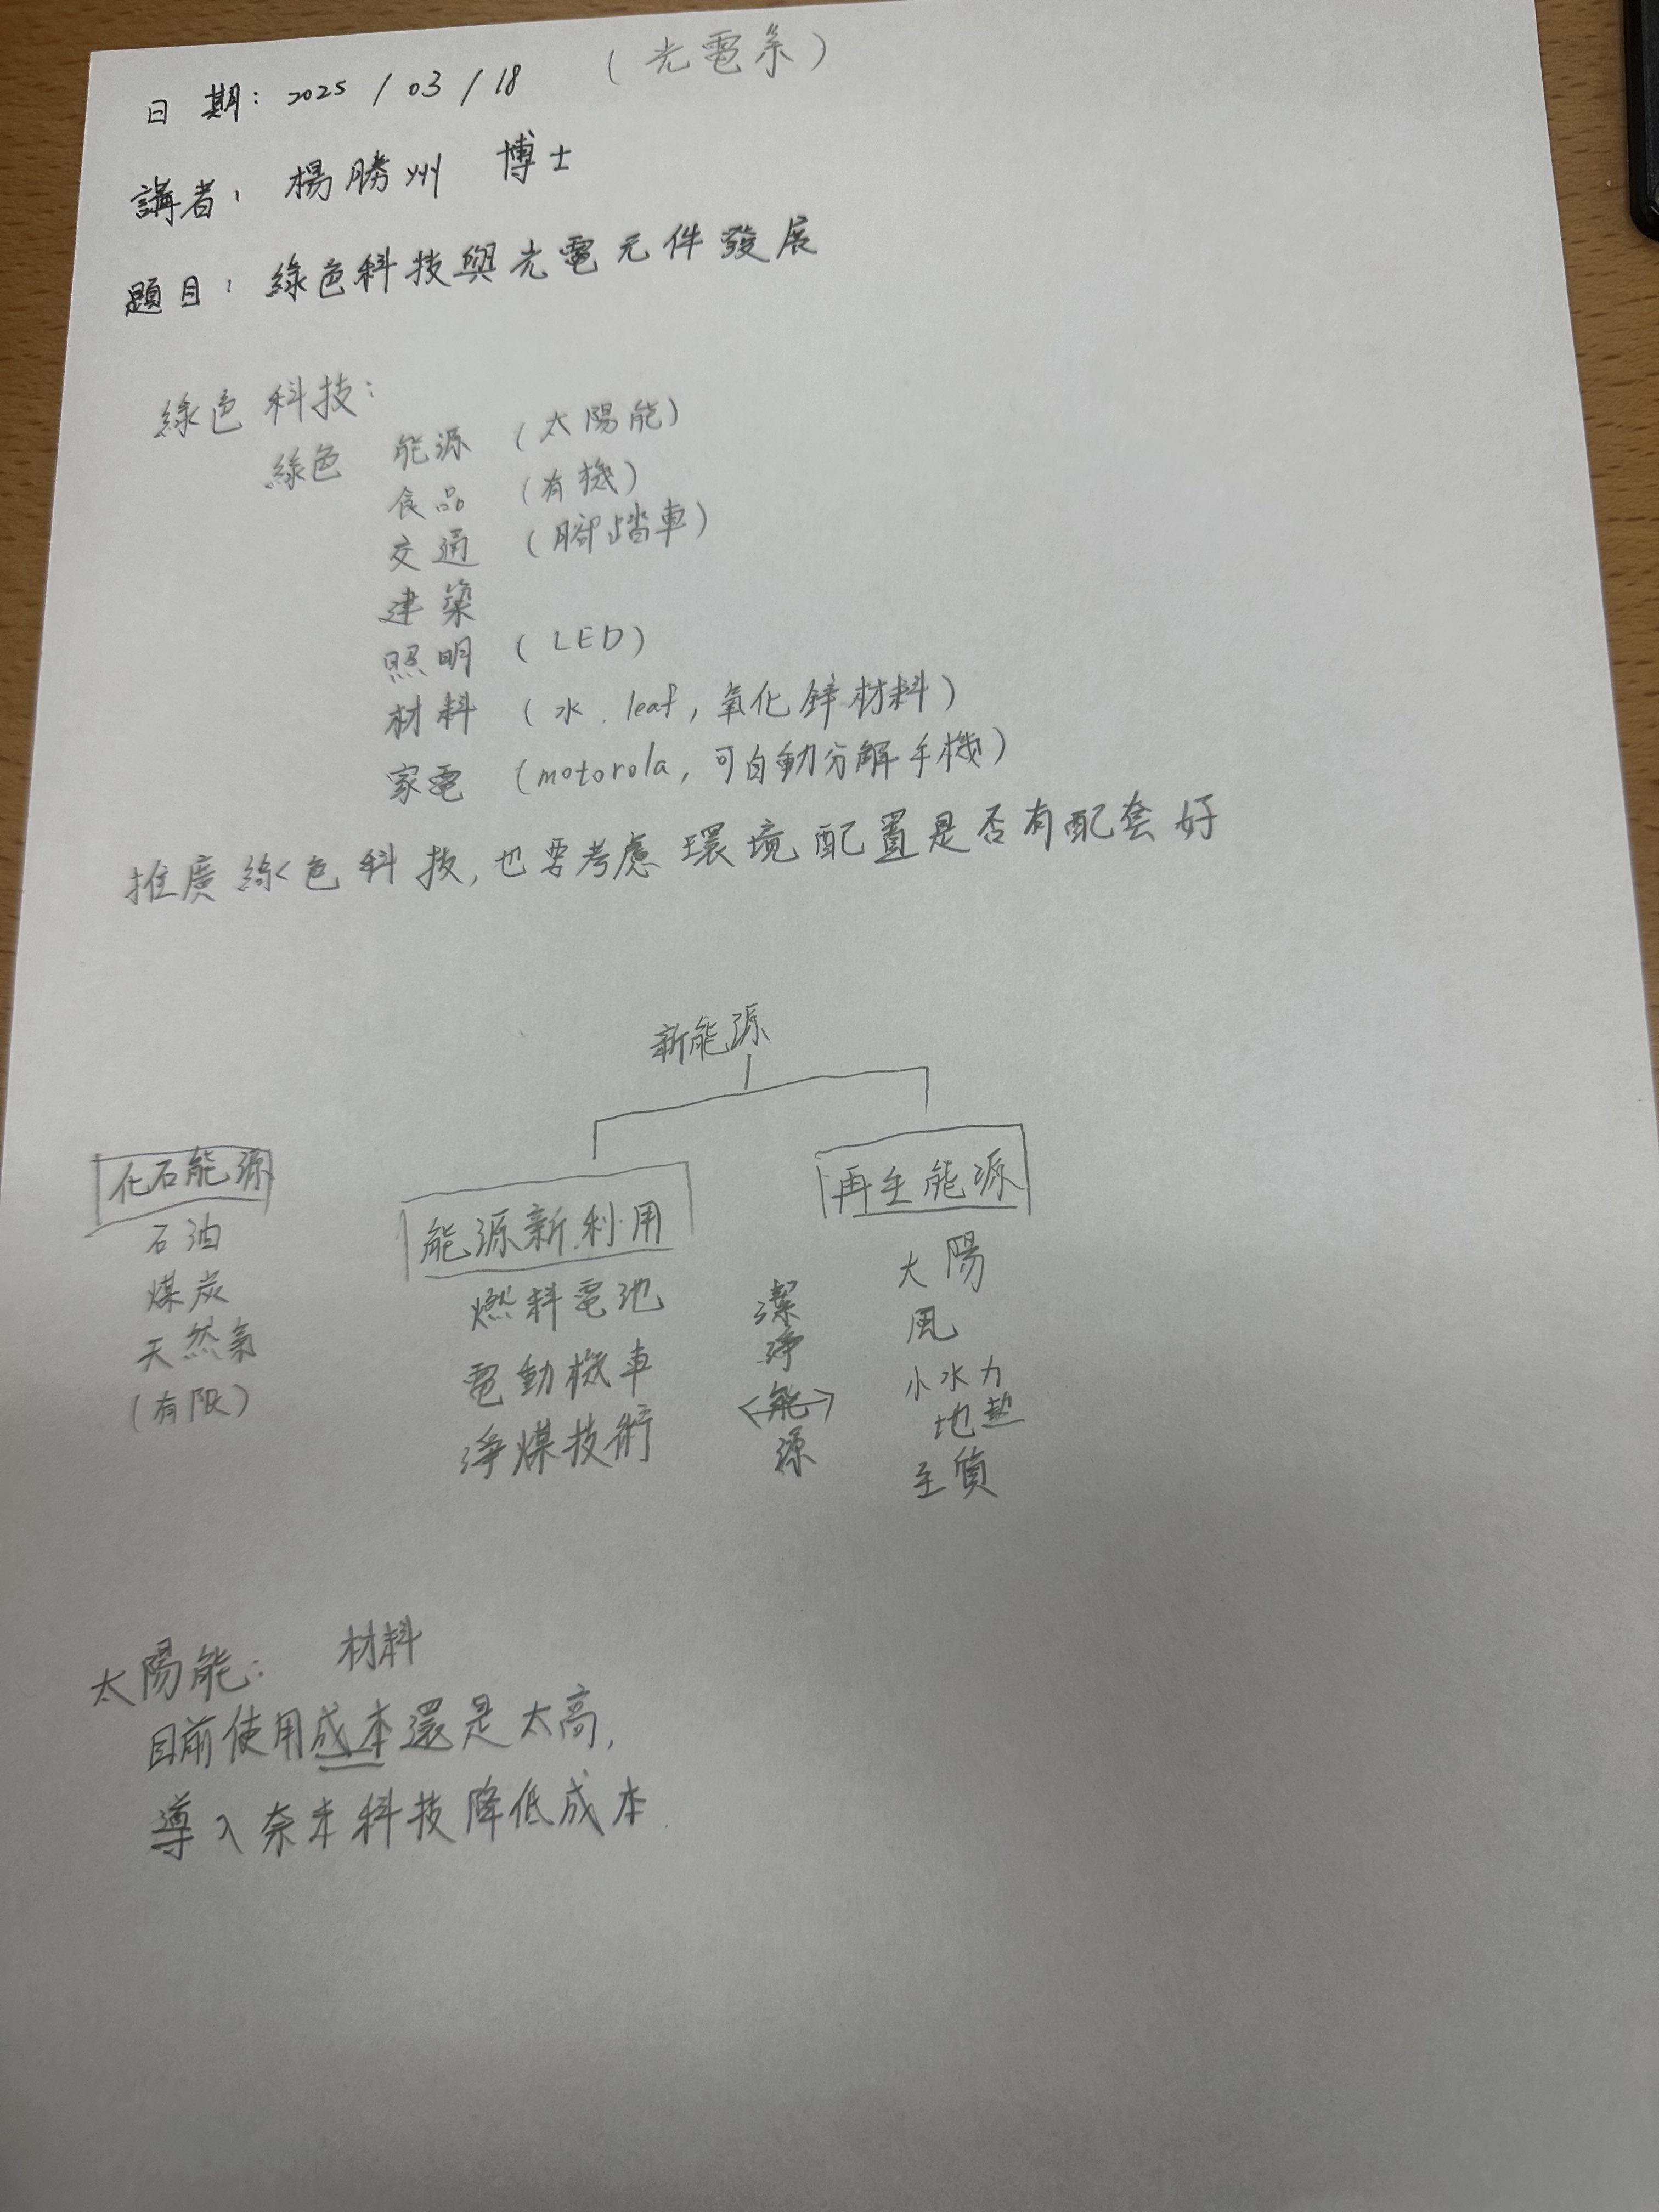 (光電系)
日期：2025/03/18
講者：楊勝州 博士
題目：綠色科技與光電元件發展
綠色科技：
綠色 能源 (太陽能)
食品 (有機)
交通 (腳踏車)
建築
照明 (LED)
材料 (水. leaf, 氧化鋅材料)
家電 (motorola, 可自動分解手機)
推廣綠色科技, 也要考慮環境配置是否有配套好
新能源
化石能源
石油
煤炭
天然氣
(有限)
能源新利用
燃料電池
電動機車
淨煤技術
潔
淨
<能>
源
再生能源
太陽
風
小水力
地熱
生質
太陽能： 材料
目前使用成本還是太高,
導入奈米科技降低成本.